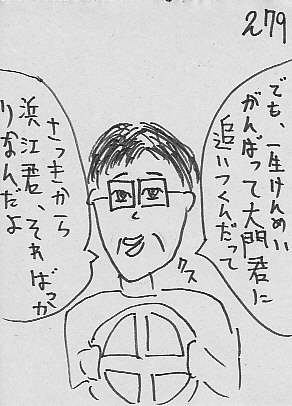 279
でも、一生けんめい
がんばって大門君に
追いつくんだって
クス
さっきから
浜江君、そればっか
りなんだよ